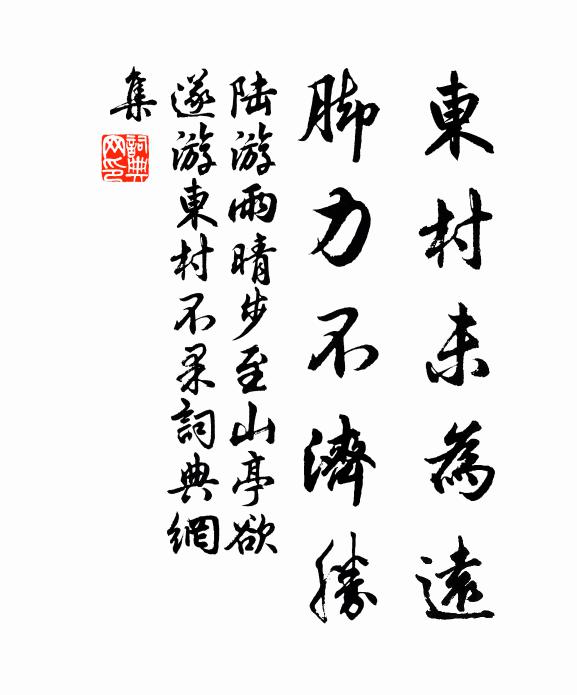 東村未為遠
脚力不濟勝
陆游雨晴步至山亭欲
遂游東村不果詞典網
集
詞典
网印